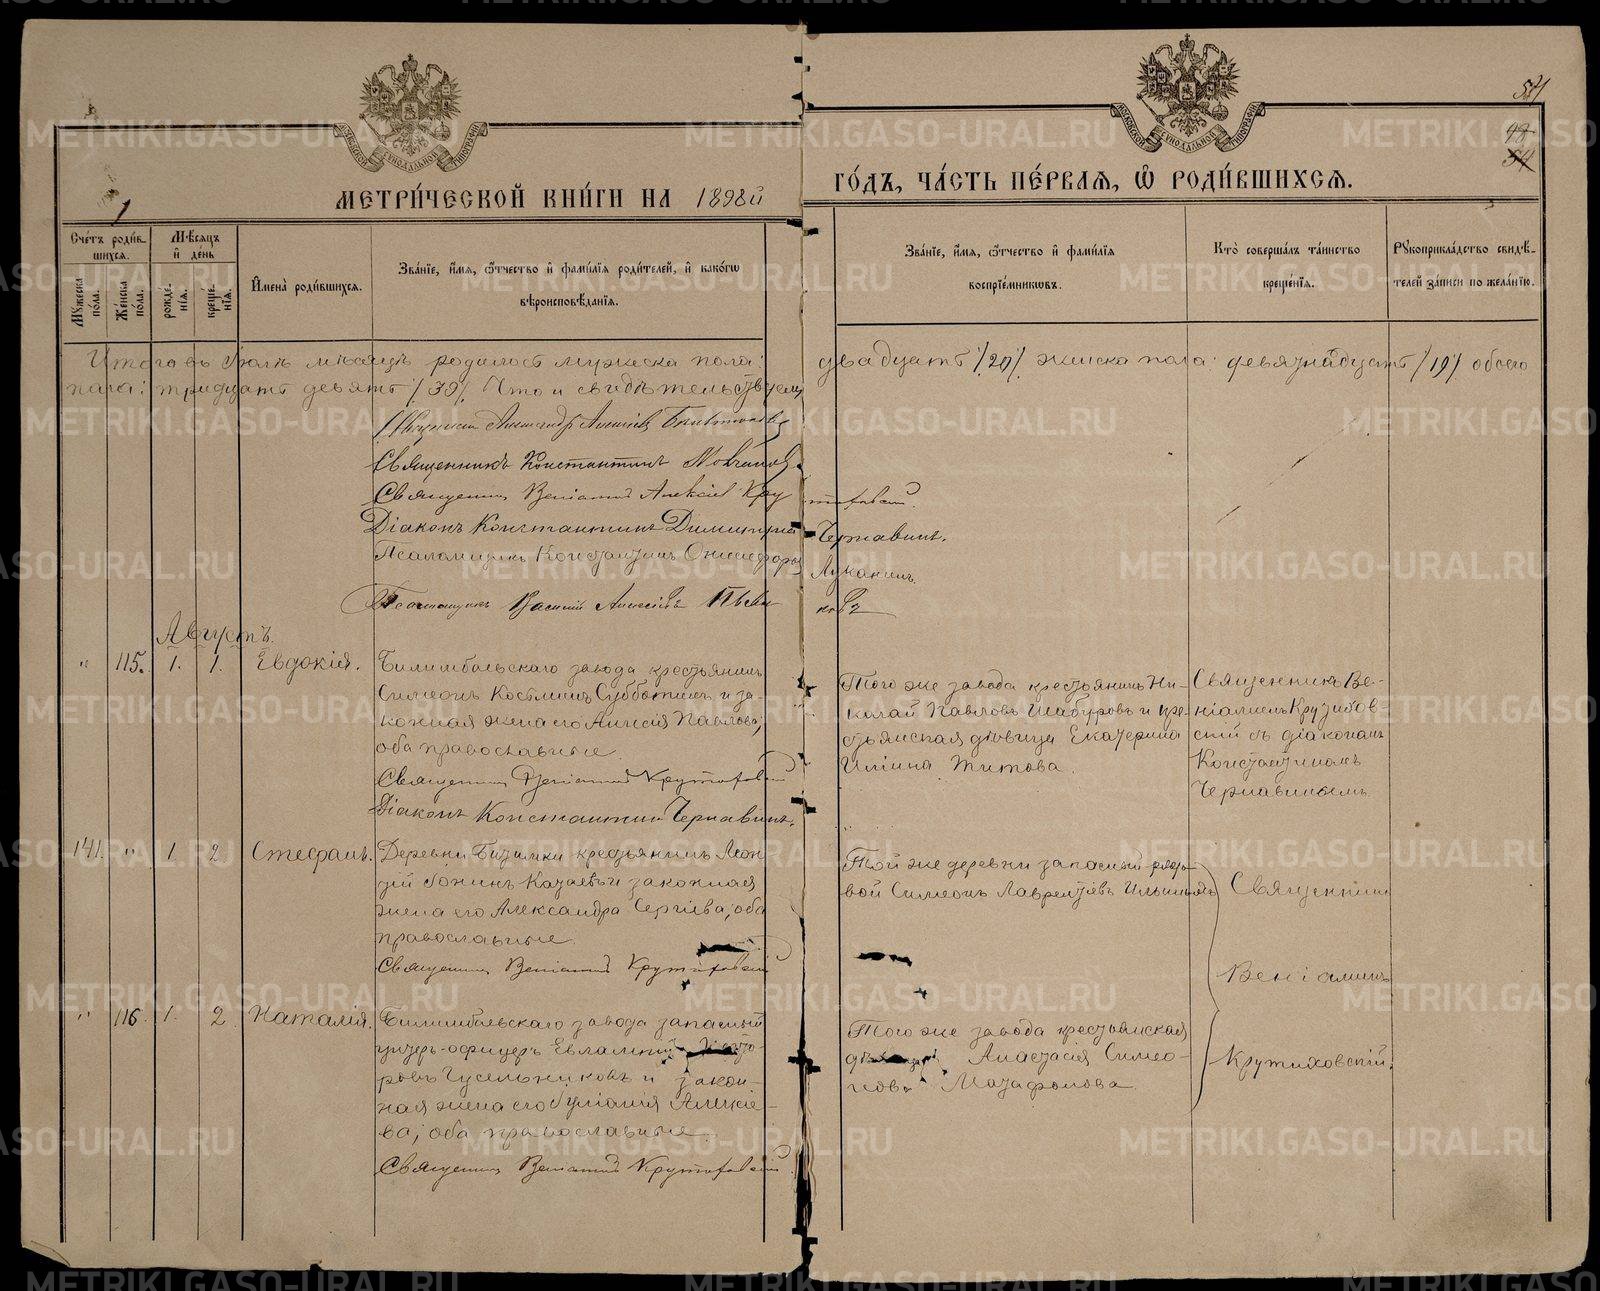 54
48
54
МЕТРИ́ЧЕСКОЙ КНИ́ГИ НА 1898й
ГО́ДЪ, ЧА́СТЬ ПЕ́РВАЯ, Ѡ РОДИ́ВШИХСЯ.
Сче́тъ роди́в-
шихся.
Му́жеска по́ла.
Же́нска по́ла.
Мѣ́сяцъ
и҆ де́нь
рожде́-
нїя.
креще́-
нїя.
И҆мена̀ роди́вшихся.
Зва́нїе, и҆́мя, ѻ҆́тчество и҆ фами́лїя роди́телей, и҆ како́гѡ
вѣроисповѣ́данїя.
Зва́нїе, и҆́мя, ѻ҆́тчество и҆ фами́лїя
воспрїе́мникѡвъ.
Кто̀ соверша́лъ та́инство
креще́нїя.
Рꙋкоприкла́дство свидѣ́-
телей за́писи по жела́нїю.
Итого въ Іюлѣ мѣсяцѣ родилось мужеска пола: двадцать /20/. женска пола: девятнадцать /19/ обоего
пола: тридцать девять /39/. Что и свидѣтельствуемъ
Александр Алексіев
Священникъ Константинъ
Священник Веніамин Алексіев Крутиховский.
Діаконъ Константинъ Димитріев Чернавинъ.
Псаломщикъ Константинъ Онисифоровъ Луканинъ
Псаломщикъ Василій Алексіевъ Пьянковъ
Августъ.
" 115. 1. 1. Евдокія.
Билимбаевскаго завода крестьянинъ
Симеонъ Косьминъ Субботинъ и за-
конная жена его Анисія Павлова,
оба православные
Священник Веніамин Крутиховский
Діаконъ Константинъ Чернавинъ.
Того же завода крестьянинъ Ни-
колай Павловъ Шабуровъ и кре-
стьянская дѣвица Екатерина
Ильина Титова.
Священникъ Ве-
ніаминъ Крутихов-
скій съ діакономъ
Константиномъ
Чернавинымъ
141. " 1. 2 Стефанъ.
Деревни Битимки крестьянинъ Леон-
тій Ѳоминъ Казаевъ и законная
жена его Александра Сергіева, оба
православные
Священник Веніамин Крутиховский
Той же деревни запасный рядо-
вой Симеонъ Лаврентіевъ Ильиныхъ
Священникъ
Веніаминъ
Крутиховскій.
" 116. 1. 2 Наталія.
Билимбаевскаго завода запасный
унтеръ-офицеръ Евлампій
ровъ Гусельниковъ и закон-
ная жена его Іуліанія Алексіе-
ва, оба православные.
Священник Веніамин Крутиховский
Того же завода крестьянская
дѣвица Анастасія Симео-
нова
METRIKI.GASO-URAL.RU